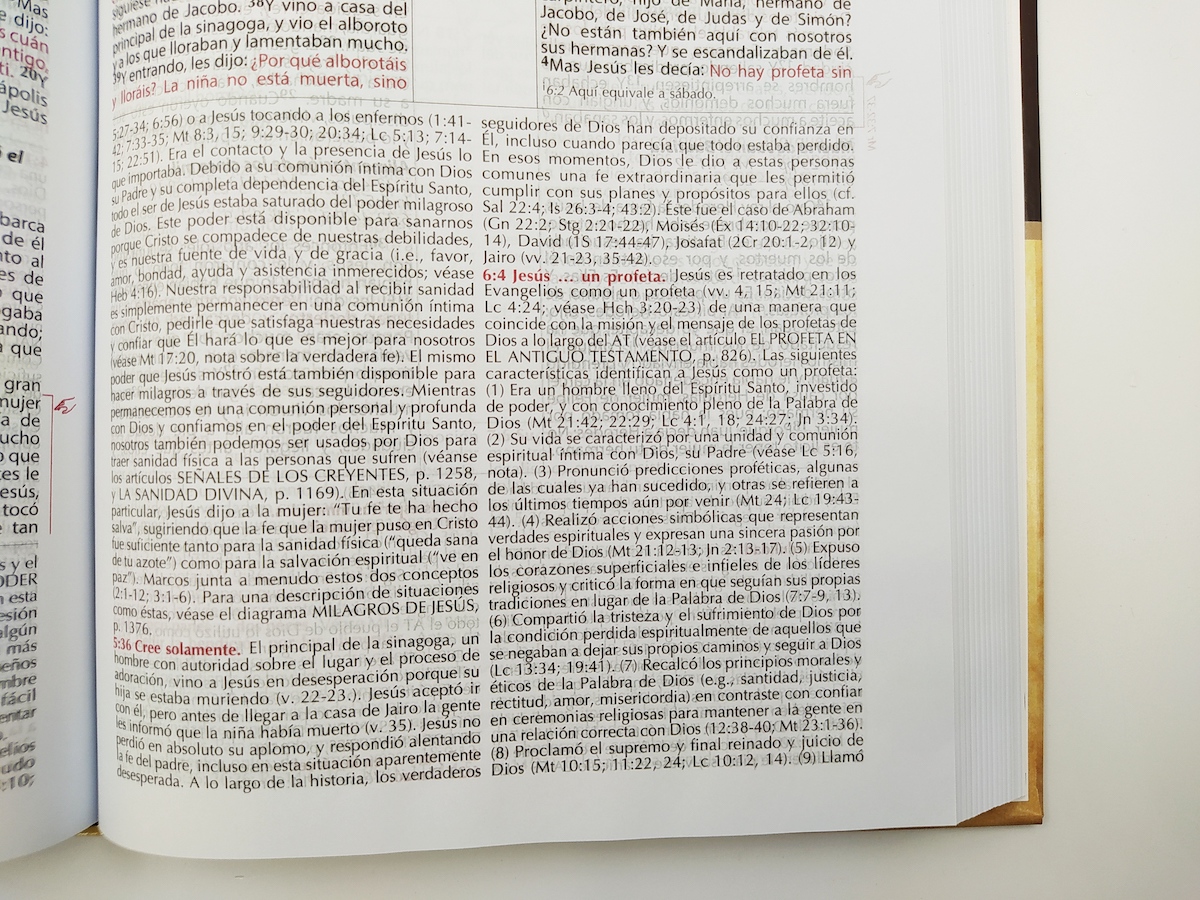 Mas
dijo:
cuán
ntigo,
ti. 20Y
ápolis
Jesús
el
barca
de él
nto al
es de
que
gaba
ando;
a que
gran
mujer
a de
ucho
o que
es le
esús,
tocó
tan
s y el
ODER
esta
esión
algún
más
eños
mbre
fácil
entar
elios
udo
:10;
hermano de Jacobo. 38Y vino a casa del
principal de la sinagoga, y vio el alboroto
y a los que lloraban y lamentaban mucho.
39Y entrando, les dijo: ¿Por qué alborotáis
y lloráis? La niña no está muerta, sino
carpintero, hijo de María, hermano de
Jacobo, de José, de Judas y de Simón?
¿No están también aquí con nosotros
sus hermanas? Y se escandalizaban de él.
4Mas Jesús les decía: No hay profeta sin
6:2 Aquí equivale a sábado.
5:27-34; 6:56) o a Jesús tocando a los enfermos (1:41-
42; 7:33-35; Mt 8:3, 15; 9:29-30; 20:34; Lc 5:13; 7:14-
15; 22:51). Era el contacto y la presencia de Jesús lo
que importaba. Debido a su comunión íntima con Dios
su Padre y su completa dependencia del Espíritu Santo,
todo el ser de Jesús estaba saturado del poder milagroso
de Dios. Este poder está disponible para sanarnos
porque Cristo se compadece de nuestras debilidades,
y es nuestra fuente de vida y de gracia (i.e., favor,
amor, bondad, ayuda y asistencia inmerecidos; véase
Heb 4:16). Nuestra responsabilidad al recibir sanidad
es simplemente permanecer en una comunión íntima
con Cristo, pedirle que satisfaga nuestras necesidades
y confiar que Él hará lo que es mejor para nosotros
(véase Mt 17:20, nota sobre la verdadera fe). El mismo
poder que Jesús mostró está también disponible para
hacer milagros a través de sus seguidores. Mientras
permanecemos en una comunión personal y profunda
con Dios y confiamos en el poder del Espíritu Santo,
nosotros también podemos ser usados por Dios para
traer sanidad física a las personas que sufren (véanse
los artículos SEÑALES DE LOS CREYENTES, p. 1258,
y LA SANIDAD DIVINA, p. 1169). En esta situación
particular, Jesús dijo a la mujer: “Tu fe te ha hecho
salva”, sugiriendo que la fe que la mujer puso en Cristo
fue suficiente tanto para la sanidad física (“queda sana
de tu azote”) como para la salvación espiritual (“ve en
paz”). Marcos junta a menudo estos dos conceptos
(2:1-12; 3:1-6). Para una descripción de situaciones
como éstas, véase el diagrama MILAGROS DE JESÚS,
p. 1376.
5:36 Cree solamente. El principal de la sinagoga, un
hombre con autoridad sobre el lugar y el proceso de
adoración, vino a Jesús en desesperación porque su
hija se estaba muriendo (v. 22-23.). Jesús aceptó ir
con él, pero antes de llegar a la casa de Jairo la gente
les informó que la niña había muerto (v. 35). Jesús no
perdió en absoluto su aplomo, y respondió alentando
la fe del padre, incluso en esta situación aparentemente
desesperada. A lo largo de la historia, los verdaderos
seguidores de Dios han depositado su confianza en
Él, incluso cuando parecía que todo estaba perdido.
En esos momentos, Dios le dio a estas personas
comunes una fe extraordinaria que les permitió
cumplir con sus planes y propósitos para ellos (cf.
Sal 22:4; Is 26:3-4; 43:2). Éste fue el caso de Abraham
(Gn 22:2; Stg 2:21-22), Moisés (Éx 14:10-22; 32:10-
14), David (1S 17:44-47), Josafat (2Cr 20:1-2, 12) y
Jairo (vv. 21-23, 35-42).
6:4 Jesús ... un profeta. Jesús es retratado en los
Evangelios como un profeta (vv. 4, 15; Mt 21:11;
Lc 4:24; véase Hch 3:20-23) de una manera que
coincide con la misión y el mensaje de los profetas de
Dios a lo largo del AT (véase el artículo EL PROFETA EN
EL ANTIGUO TESTAMENTO, p. 826). Las siguientes
características identifican a Jesús como un profeta:
(1) Era un hombre lleno del Espíritu Santo, investido
de poder, y con conocimiento pleno de la Palabra de
Dios (Mt 21:42; 22:29; Lc 4:1, 18; 24:27; Jn 3:34).
(2) Su vida se caracterizó por una unidad y comunión
espiritual íntima con Dios, su Padre (véase Lc 5:16,
nota). (3) Pronunció predicciones proféticas, algunas
de las cuales ya han sucedido, y otras se refieren a
los últimos tiempos aún por venir (Mt 24; Lc 19:43-
44). (4) Realizó acciones simbólicas que representan
verdades espirituales y expresan una sincera pasión por
el honor de Dios (Mt 21:12-13; Jn 2:13-17). (5) Expuso
los corazones superficiales e infieles de los líderes
religiosos y criticó la forma en que seguían sus propias
tradiciones en lugar de la Palabra de Dios (7:7-9, 13).
(6) Compartió la tristeza y el sufrimiento de Dios por
la condición perdida espiritualmente de aquellos que
se negaban a dejar sus propios caminos y seguir a Dios
(Lc 13:34; 19:41). (7) Recalcó los principios morales y
éticos de la Palabra de Dios (e.g., santidad, justicia,
rectitud, amor, misericordia) en contraste con confiar
en ceremonias religiosas para mantener a la gente en
una relación correcta con Dios (12:38-40; Mt 23:1-36).
(8) Proclamó el supremo y final reinado y juicio de
Dios (Mt 10:15; 11:22, 24; Lc 10:12, 14). (9) Llamó